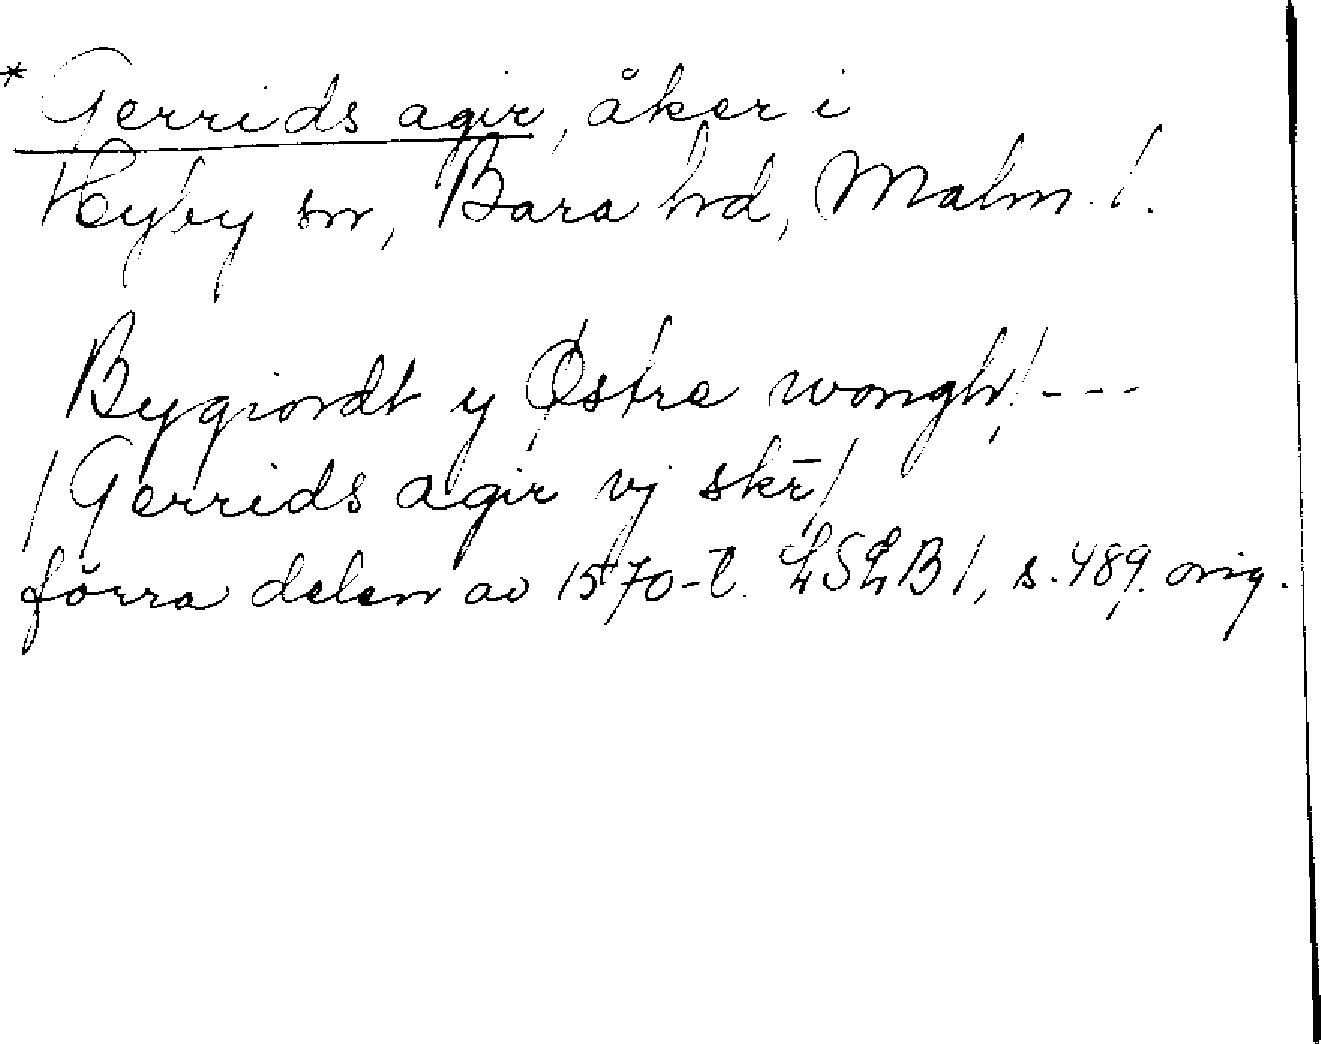 * Gerrids agir, åker i
Hyby sn, Bara hd, Malm. l.
Bygiordt y Østre wongh/ - - -
/Gerrids agir vj skr̄/
förra delen av 1570-t. LSLB 1, s. 489. orig.